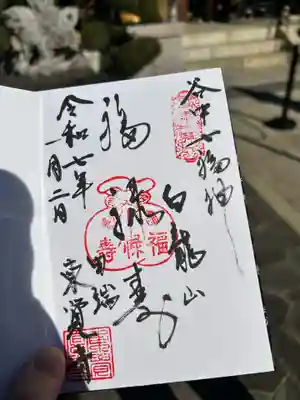 谷中七福神
白龍山
福
禄
寿
寿保福
田端
東覚寺
令和七年
一月二日